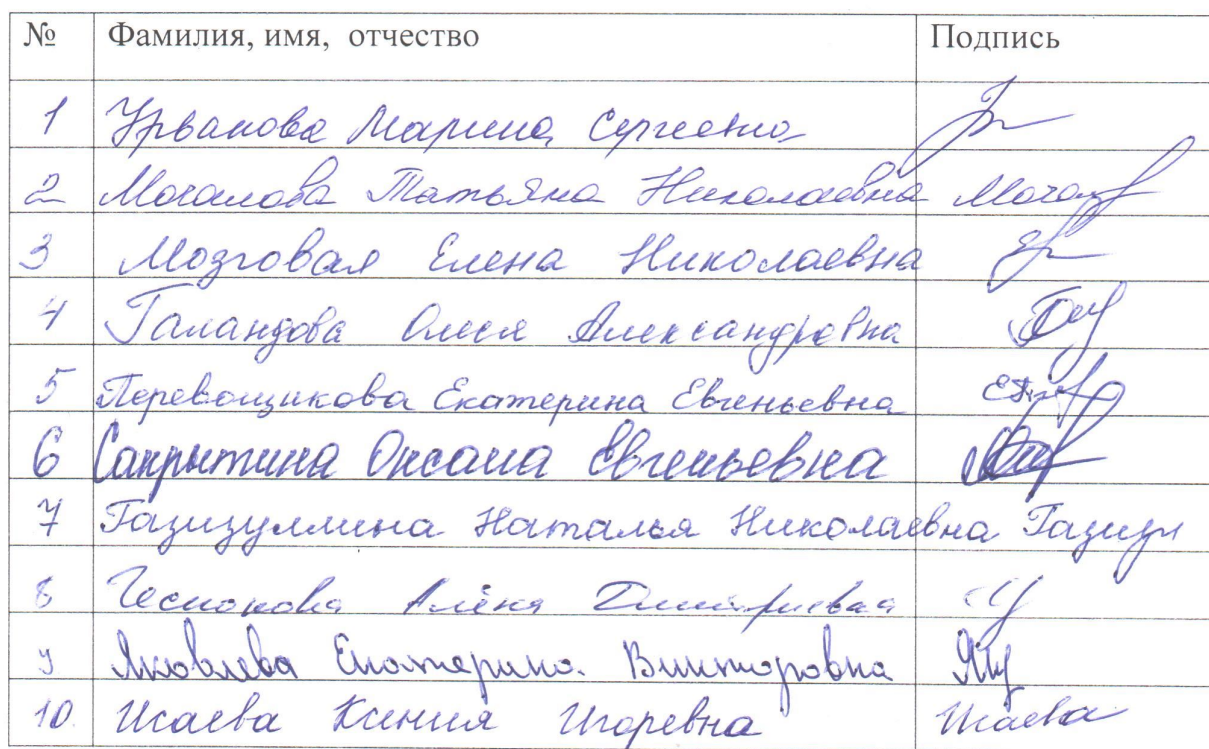 № Фамилия, имя, отчество Подпись
1 Урванова Марина Сергеевна
2 Мочалова Татьяна Николаевна
3 Мозговая Елена Николаевна
4 Галандова Олеся Александровна
5 Перевощикова Екатерина Евгеньевна
6 Сакрытина Оксана Евгеньевна
7 Газизуллина Наталья Николаевна Газизул
8 Чеснокова Алёна Дмитриевна
9 Яковлева Екатерина Викторовна
10. Исаева Ксения Игоревна Исаева